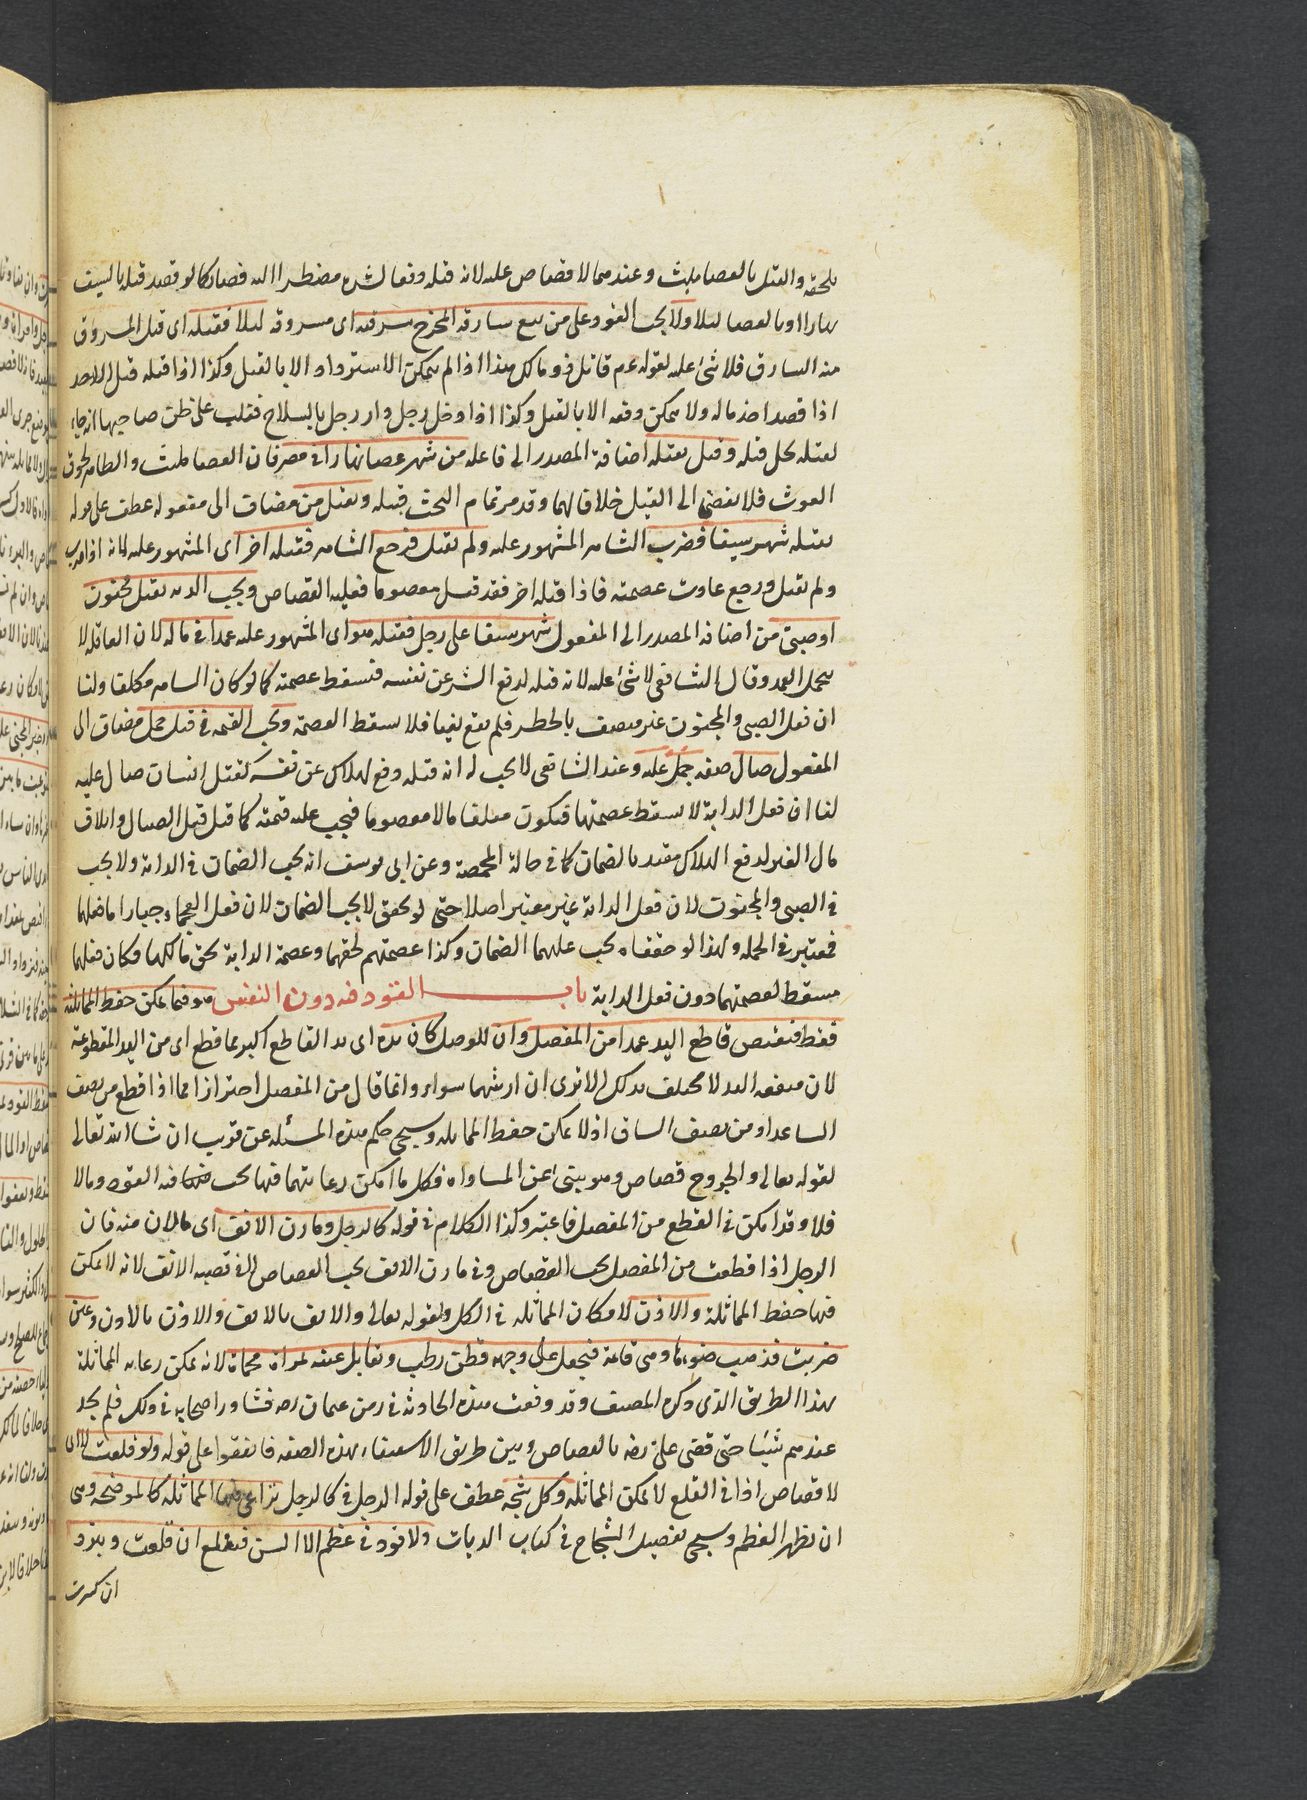 يلحقه والقتل بالعصا يلبث وعندهما لا قصاص عليه لانه قتله دفعا لشره مضطرا اليه فصار كما لو قصد قتله بالسيف
نهارا او بالعصا ليلا ولا يجب القود على من يتبع سارقه المخرج سرقته اى مسروقه ليلا فقتله اى قتل المسروق
منه السارق فلا شئ عليه لقوله عم قاتل دون مالك هذا اذا لم يتمكن الاسترداد الا بالقتل وكذا اذا قتله قبل الاخذ
اذا قصد اخذ ماله ولا يمكن دفعه الا بالقتل وكذا اذا دخل رجل دار رجل بالسلاح فغلب على ظن صاحبها انه جاء
لقتله يحل قتله وقيل بقتله اضافة المصدر الى فاعله من شهر عصا نهارا فى مصر فان العصا يلبث والظاهر لحوق
الغوث فلا يفضى الى القتل خلافا لهما وقد مر تمام البحث قبله وبقتل من مضاف الى مفعوله عطف على قوله
بقتله شهر سيفا فضرب الشاهر المشهور عليه ولم يقتل فرجع الشاهر فقتله اخر اى المشهور عليه لانه اذا ضرب
ولم يقتل ورجع عادت عصمته فاذا قتله اخر فقد قتل معصوما فعليه القصاص ويجب الدية بقتل مجنون
او صبى من اضافة المصدر الى المفعول شهر سيفا على رجل فقتله هو اى المشهور عليه عمدا فى ماله لان العاقلة لا
يتحمل العمد وقال الشافعى لا شئ عليه لانه قتله لدفع الشر عن نفسه فتسقط عصمته كما لو كان الشاهر مكلفا ولنا
ان فعل الصبى والمجنون غير متصف بالحظر فلم يقع بغيا فلا يسقط العصمة ويجب القيمة فى قتل جمل مضاف الى
المفعول صال صفة جمل عليه وعند الشافعى لا يجب له انه قتله دفع الهلاك عن نفسه كقتل انسان صال عليه
لنا ان فعل الدابة لا يسقط عصمتها فيكون متلفا مالا معصوما فيجب عليه قيمته كما قتل قبل الصيال واتلاف
مال الغير لدفع الهلاك مقيد بالضمان كما فى حالة المخمصة وعن ابى يوسف انه يجب الضمان فى الدابة ولا يجب
فى الصبى والمجنون لان فعل الدابة غير معتبر اصلا حتى لو تحقق لا يجب الضمان لان فعل العجماء جبار اما فعلهما
فمعتبر فى الجملة ولهذا لو حققاه يجب عليهما الضمان وكذا عصمتهم لحقهما وعصمة الدابة لحق مالكها فكان فعلهما
مسقطا لعصمتهما دون فعل الدابة باب القود فيه دون النفس هو فيما يمكن حفظ المماثلة
فقط فيقتص قاطع اليد عمدا من المفصل وان للوصل كان يده اى يد القاطع اكبر مما قطع اى من اليد المقطوعة
لان منفعة اليد لا تختلف بذلك الا ترى ان ارشهما سواء وانما قال من المفصل احترازا مما اذا قطع من نصف
الساعد او من نصف الساق اذ لا يمكن حفظ المماثلة وسيجى حكم هذه المسئلة عن قريب ان شا الله تعالى
لقوله تعالى والجروح قصاص وهو يبتنى عن المساواة فكل ما امكن رعايتهما فيها يجب فيه القود وما لا
فلا وقد امكن فى القطع من المفصل فاعتبر وكذا الكلام فى قوله كالرجل ومارن الانف اى مالان منه فان
الرجل اذا قطعت من المفصل يجب القصاص وفى مارن الانف يجب القصاص لا فى قصبة الانف لانه لا يمكن
فيها حفظ المماثلة والاذن لامكان المماثلة فى الكل ولقوله تعالى والانف بالانف والاذن بالاذن وعين
ضربت فذهب ضوءها وهى قائمة فيجعل على وجهه قطن رطب وتقابل عينه بمرآة محماة لانه يمكن رعاية المماثلة
بهذا الطريق الذى ذكره المصنف وقد وقعت هذه الحادثة فى زمن عثمان رضه فشاور اصحابه فى ذلك فلم يجد
عندهم شيئا حتى قضى على رضه بالقصاص وبين طريق الاستيفاء بهذه الصفة فاتفقوا على قوله ولو قلعت لا اى
لا قصاص اذا فى القلع لا يمكن المماثلة وكل شجة عطف على قوله الرجل فى كالرجل تراعى فيها المماثلة كالموضحة وهى
ان تظهر العظم وسيجى تفصيل الشجاج فى كتاب الديات ولا قود فى عظم الا السن فيقلع ان قلعت ويبرد
ان كسرت